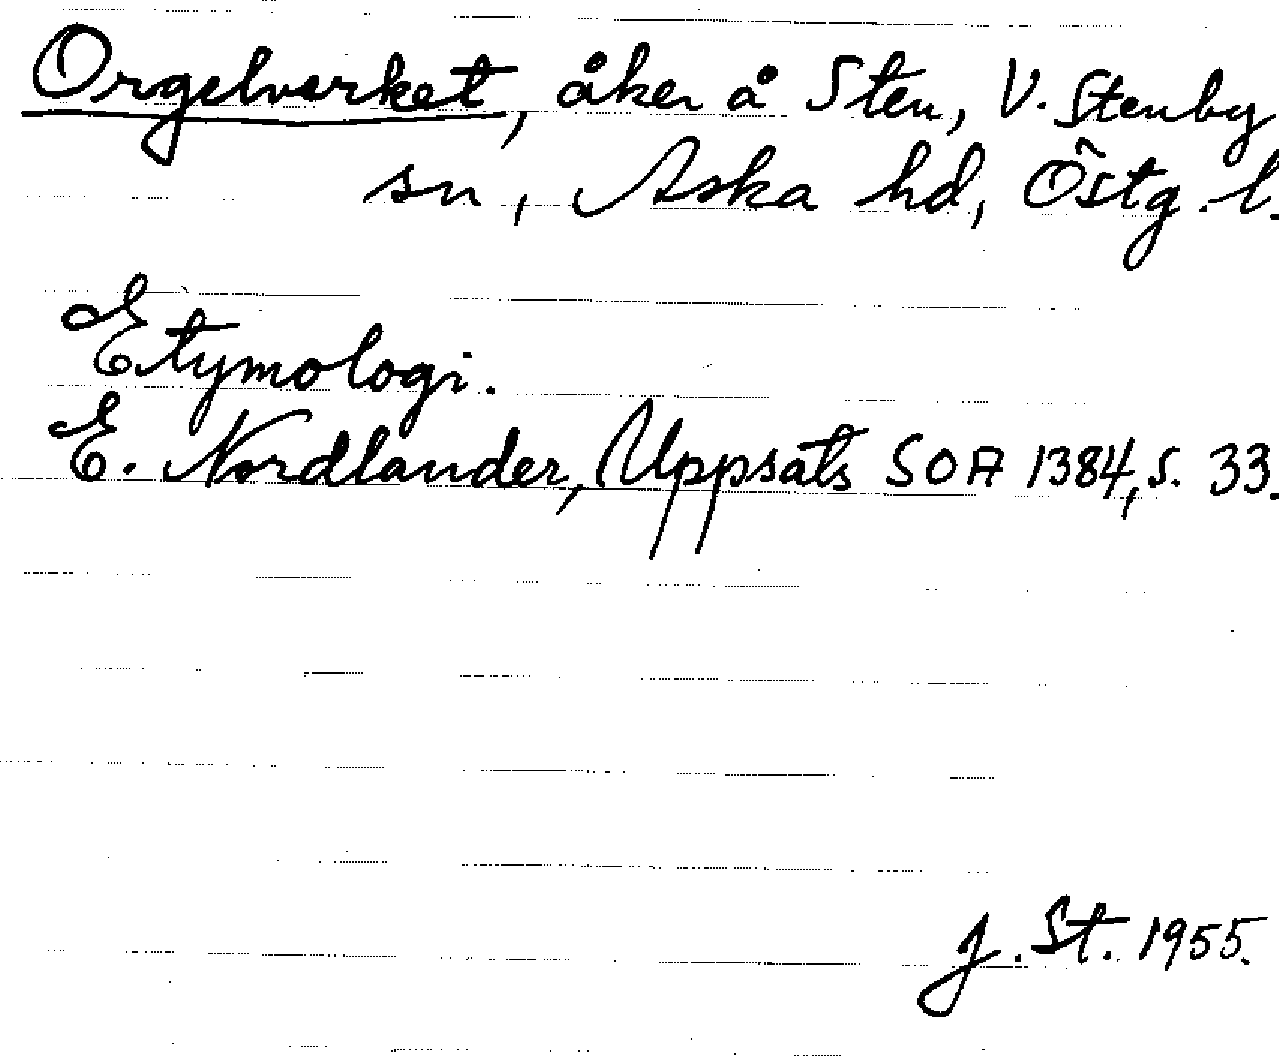 Orgelverket, åker å Sten, V. Stenby
sn, Aska hd, Östg. l.
Etymologi.
E. Nordlander, Uppsats SOA 1384, s. 33.
J. St. 1955.